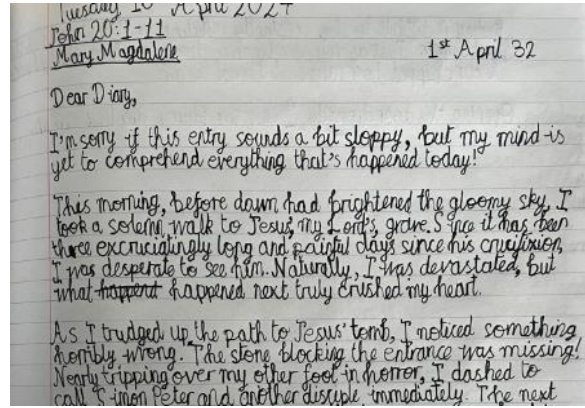 Tuesday 16 April 2024
John 20:1-11
Mary Magdalene
1st April 32
Dear Diary,
I'm sorry if this entry sounds a bit sloppy, but my mind is
yet to comprehend everything that's happened today!
This morning, before dawn had brightened the gloomy sky, I
took a solemn walk to Jesus, my Lord's, grave. Since it has been
three excruciatingly long and painful days since his crucifixion,
I was desperate to see him. Naturally, I was devastated, but
what happent happened next truly crushed my heart.
As I trudged up the path to Jesus' tomb, I noticed something
horribly wrong. The stone blocking the entrance was missing!
Nearly tripping over my other foot in horror, I dashed to
call Simon Peter and another disciple immediately. The next